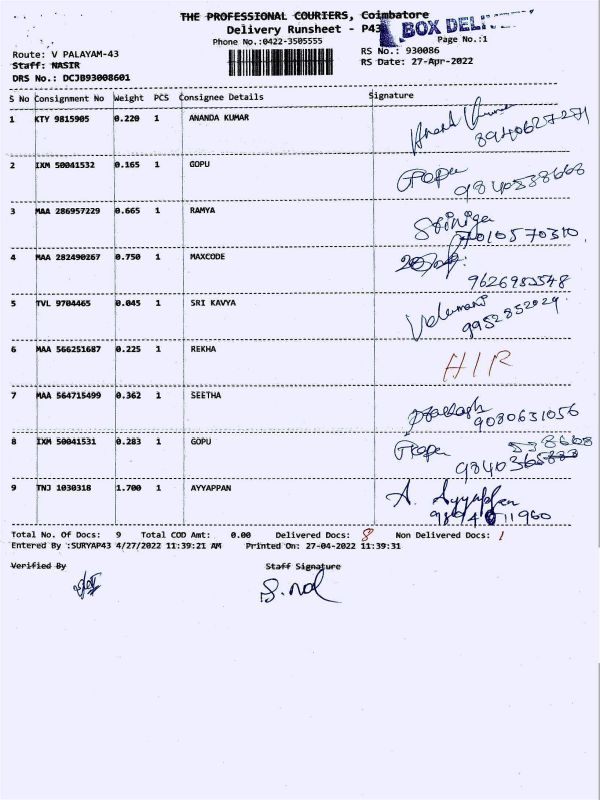 THE PROFESSIONAL COURIERS, Coimbatore
Delivery Runsheet - P43
BOX DELI
Phone No.:0422-3505555
Page No.:1
Route: V PALAYAM-43
RS No.: 930086
Staff: NASIR
RS Date: 27-Apr-2022
DRS No.: DCJB93008601
S No Consignment No Weight PCS Consignee Details Signature
1 KTY 9815905 0.220 1 ANANDA KUMAR Anand Kumar
8940627271
2 IXM 50041532 0.165 1 GOPU Gopu
9840538668
3 MAA 286957229 0.665 1 RAMYA
7010570310
4 MAA 282490267 0.750 1 MAXCODE
9626982548
5 TVL 9704465 0.045 1 SRI KAVYA
9952852029
6 MAA 566251687 0.225 1 REKHA HIR
7 MAA 564715499 0.362 1 SEETHA
9080631056
8 IXM 50041531 0.283 1 GOPU Gopu 538668
9840
9 TNJ 1030318 1.700 1 AYYAPPAN A. Ayyappan
Total No. Of Docs: 9 Total COD Amt: 0.00 Delivered Docs: 8 Non Delivered Docs: 1
Entered By :SURYAP43 4/27/2022 11:39:21 AM Printed On: 27-04-2022 11:39:31
Verified By Staff Signature